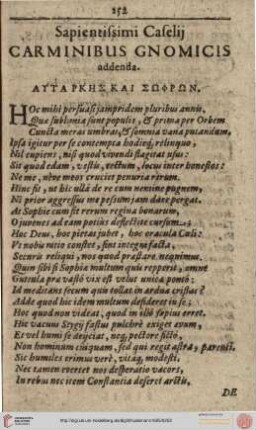 152
Sapientissimi Caselij
CARMINIBUS GNOMICIS
addenda.
ΑΥΤΑΡΚΗΣ ΚΑΙ ΣΩΦΡΩΝ.
HOc mihi persuasi jampridem pluribus annis,
Quæ sublimia sunt populo, & prima per Orbem
Cuncta meras umbras, & somnia vana putandum,
Ipsa igitur per se contempta hodieq; relinquo,
Nil cupiens, nisi quod vivendi flagitat usus:
Sit quod edam, vestis, tectum, locus inter honestos:
Ne me, neve meos cruciet penuria rerum.
Hinc fit, ut hic ullâ de re cum nemine pugnem,
Ni prior aggressus me pessum jam dare pergat.
At Sophie cum sit rerum regina bonarum,
O juvenes ad eam potius deflectite cursum:
Hoc Deus, hoc pietas jubet, hoc oracula Cœli:
Ut nobu ratio constet, sint integra facta,
Securis reliqui, nos quod præstare nequimus.
Quin sibi si Sophia multum quis repperit, omne
Guttula præ vasto vix est velut unica ponto:
Id meditans secum quis tollat in ardua cristas?
Adde quod hic idem multum desideret in se;
Hoc quod non videat, quod in illo sæpius erret.
Hic vacuus Stygij fastus pulchrè exiget ævum,
Et vel humi se dejiciat, neq; pectore sisto,
Non hominum cuiquam, sed qui regit astra, parenti.
Sic humiles erimus verè, vitaq; modesti.
Nec tamen evertet nos desperatio vacors,
In rebus nec item Constantia deseret arctis,
DE
http://digi.ub.uni-heidelberg.de/diglit/